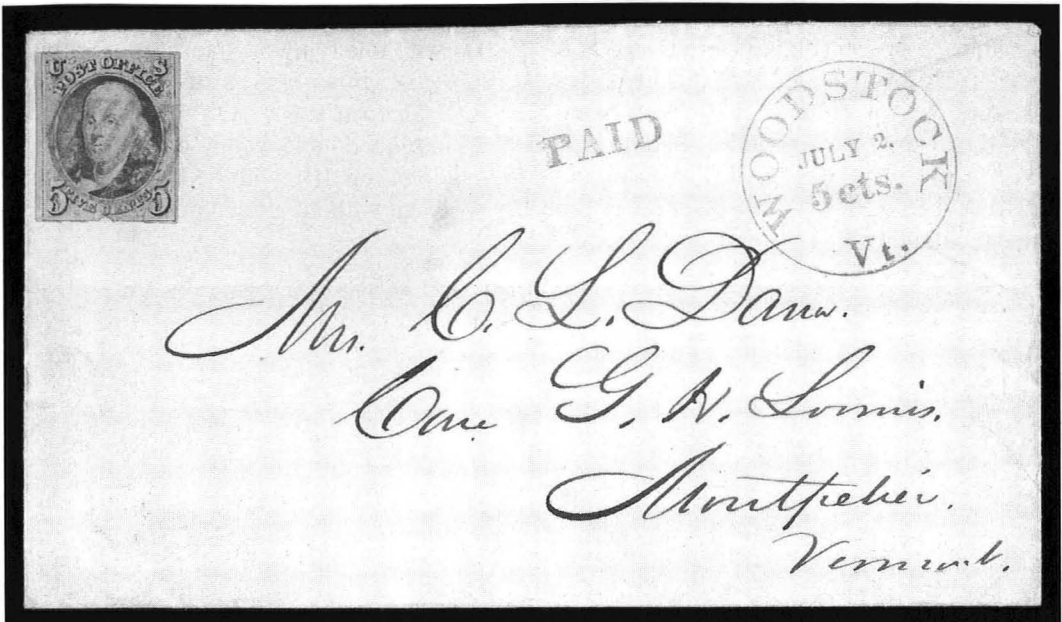 U S
POST OFFICE
5 FIVE CENTS 5
PAID
WOODSTOCK
JULY 2.
5cts.
Vt.
Mrs. C. L. Dana.
Care G. N. Loomis.
Montpelier.
Vermont.